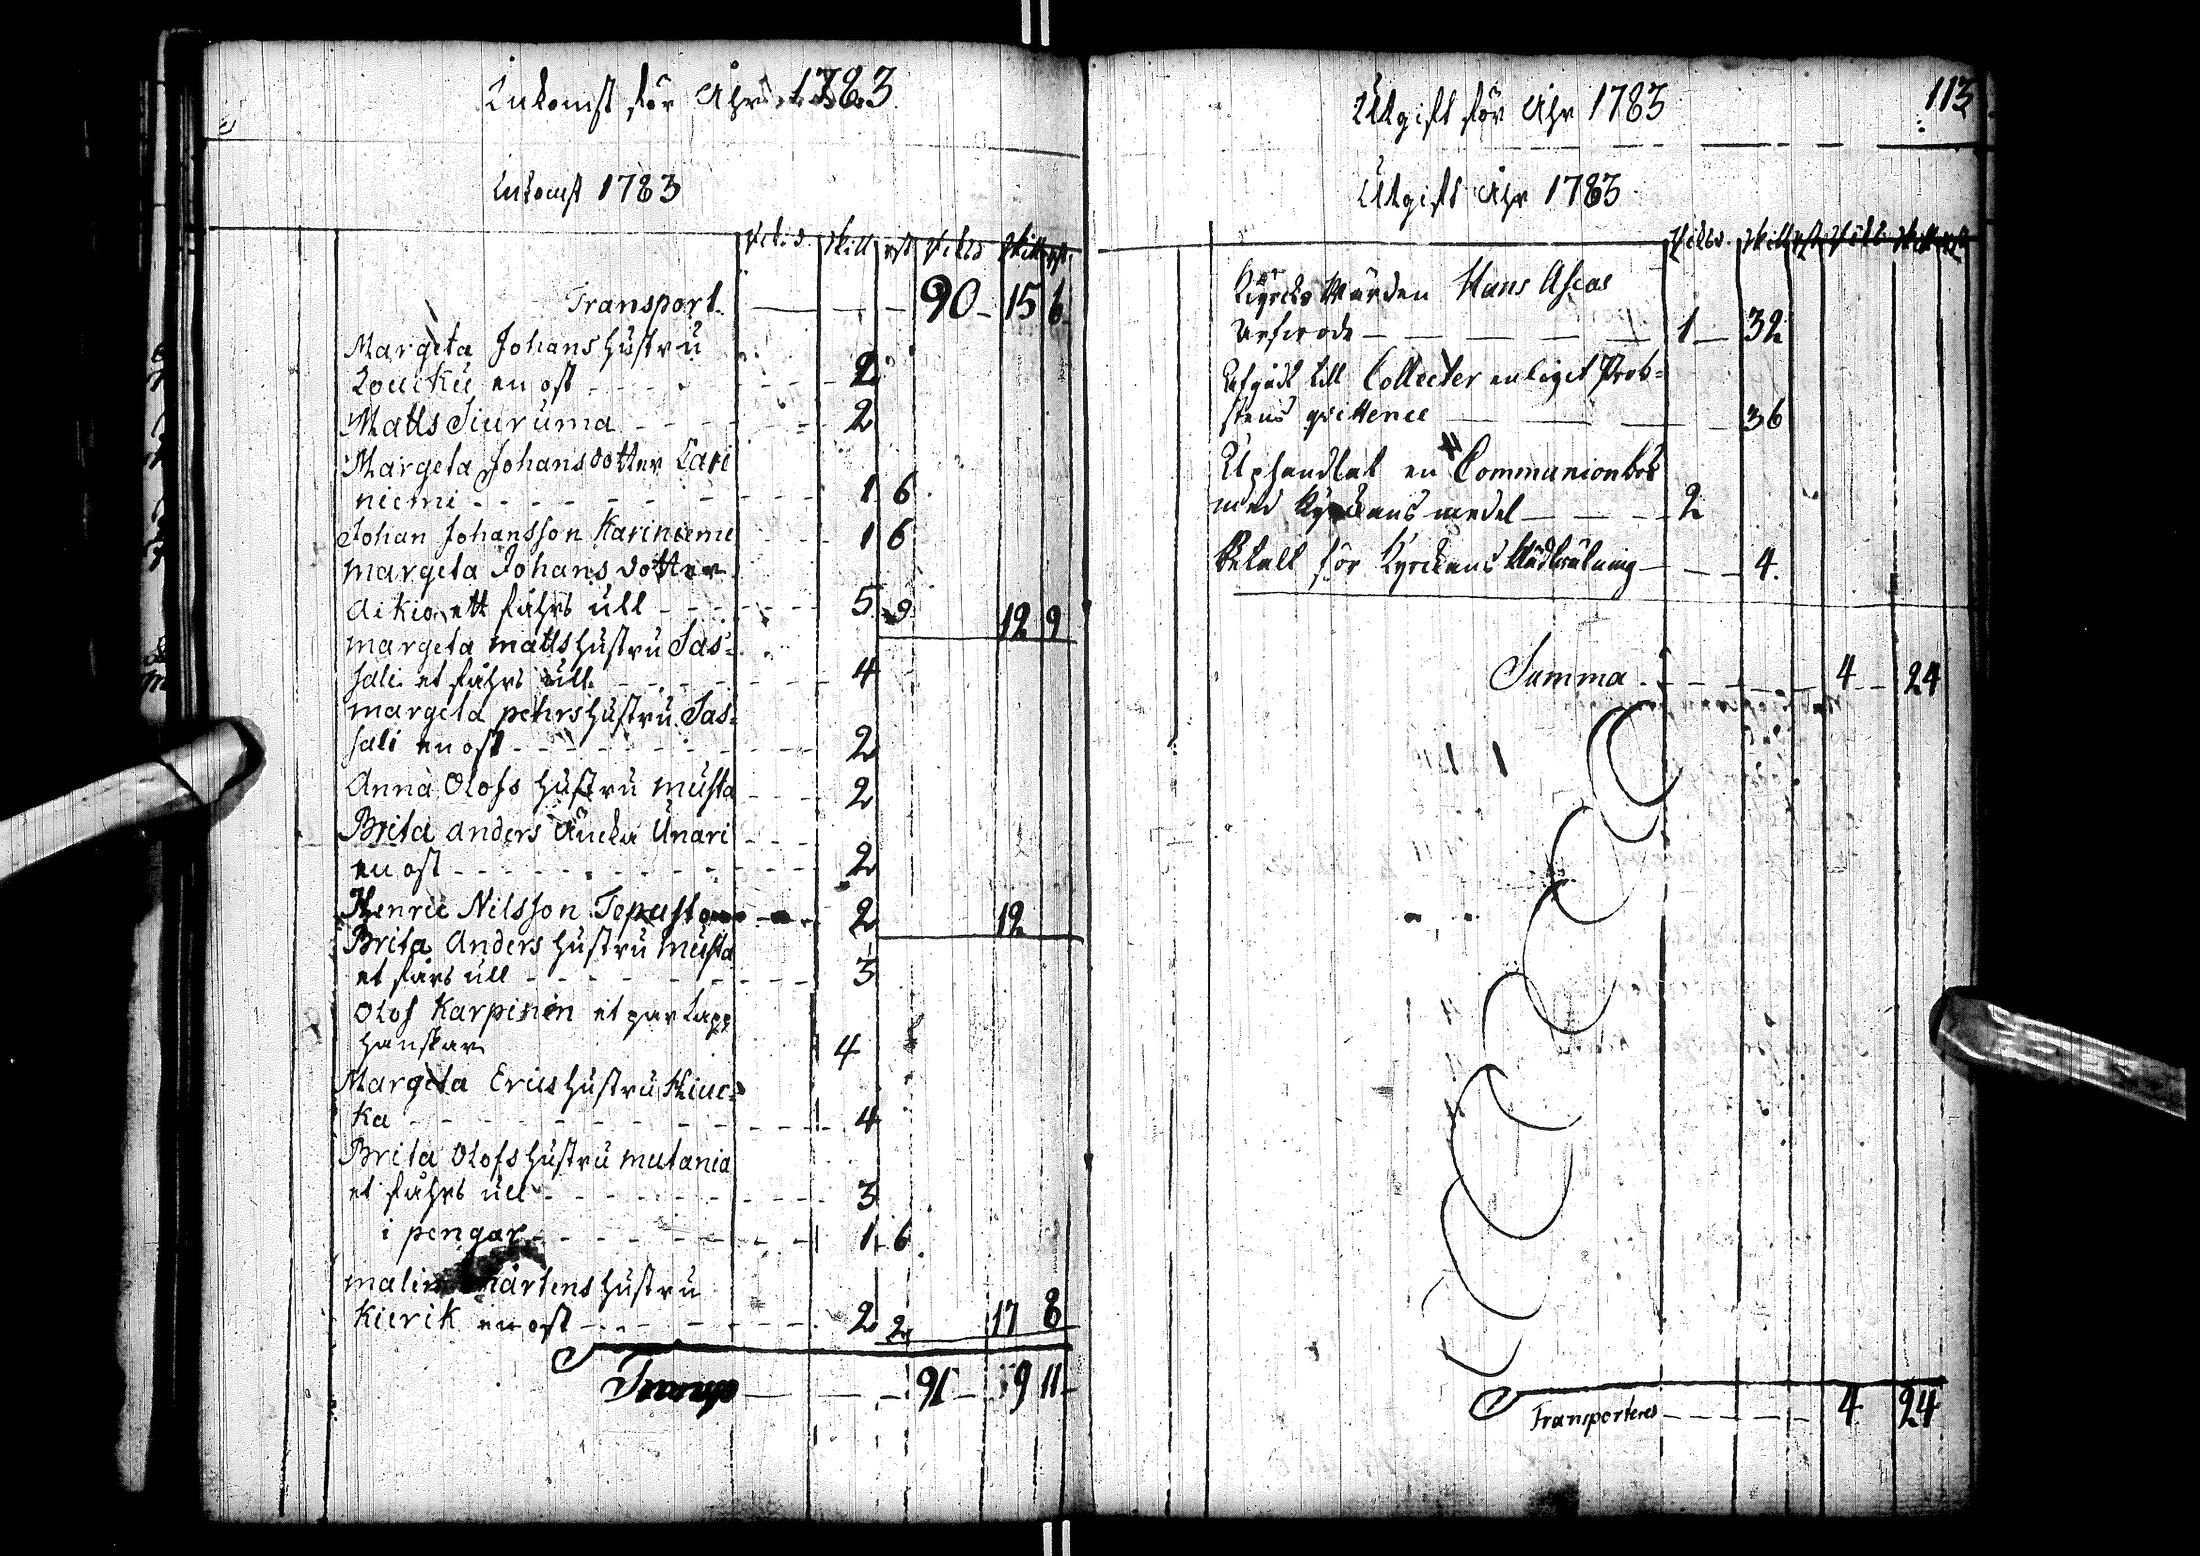 Inkomst för Åhr 1783
Inkomst 1783
Riksd. skill rst Riksd skill rst.
Transport. 90 15 6
Margeta Johans hustru
Loucku en ost 2
Matts Siuruma 2
Margeta Johansdotter Kari
niemi 1 6
Johan Johansson Kariniemi 1 6
margeta Johans dotter
Aikio ett fåhrs ull 5 9 12 9
margeta matts hustru Sas=
sali et fåhrs ull 4
margeta pehrs hustru Sas=
sali en ost 2
Anna Olofs hustru musta 2
Brita anders Äncka Unari
en ost 2
Henric Nilsson 2 12
Brita Anders hustru musta
et fårs ull 3
Olof Karpinen et par Lapp
hanskar 4
Margeta Erics hustru Kiuc=
ka 4
Brita Olofs hustru mutania
et fåhrs ull 3
i pengar 1 6
malin mårtens hustru
Kierik en ost 2 2 17 8
Transp 91 9 11
Utgift för Åhr 1783 113
Utgift Åhr 1783
Riksd. skill rst Riksd skill rst
Kyrcko Wärden Hans Ascas
Arfwode 1 32
Utgådt till Collecter enligt Prob=
stens qvittence 36
Uphandlat en Communionbok
med Kyrckans medel 2
Betalt för Kyrckans 4.
Summa 4 24
Transporteres 4 24